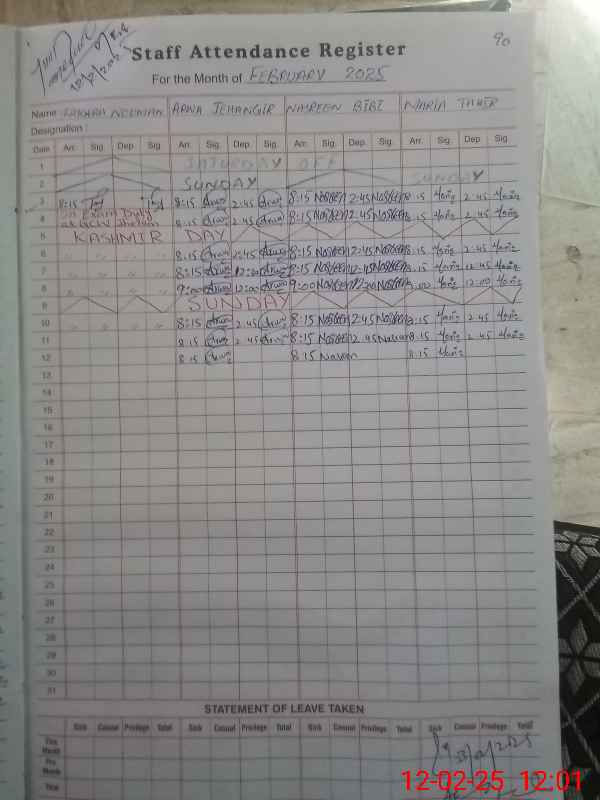 90
Staff Attendance Register
For the Month of FEBRUARY 2025
Name ARWA JEHANGIR NASREEN BIBI MARIA TAHIR
Designation :
Date Arr. Sig. Dep. Sig. Arr. Sig. Dep. Sig. Arr. Sig. Dep. Sig. Arr. Sig. Dep. Sig.
1 SATURDAY OFF
2 SUNDAY SUNDAY
3 8:15 8:15 2:45 8:15 Nasreen 2:45 Nasreen 8:15 2:45
4 On Exam Duty at GCW Jhelum 8:15 2:45 8:15 Nasreen 2:45 Nasreen 8:15 2:45
5 KASHMIR DAY
6 " " " 8:15 2:45 8:15 Nasreen 2:45 Nasreen 8:15 2:45
7 " " " 8:15 12:00 8:15 Nasreen Nasreen 8:15
8 " " " " 9:00 12:00 9:00 Nasreen Nasreen 9:00 12:00
9 SUNDAY
10 " " " " 8:15 2:45 8:15 Nasreen 2:45 Nasreen 8:15 2:45
11 " " " " 8:15 2:45 8:15 Nasreen 2:45 Nasreen 8:15 2:45
12 8:15 8:15 Nasreen 8:15
13
14
15
16
17
18
19
20
21
22
23
24
25
26
27
28
29
30
31
STATEMENT OF LEAVE TAKEN
Sick Casual Privilege Total Sick Casual Privilege Total Sick Casual Privilege Total Sick Casual Privilege Total
This Month
Pre Month
Total
12-02-25 12:01